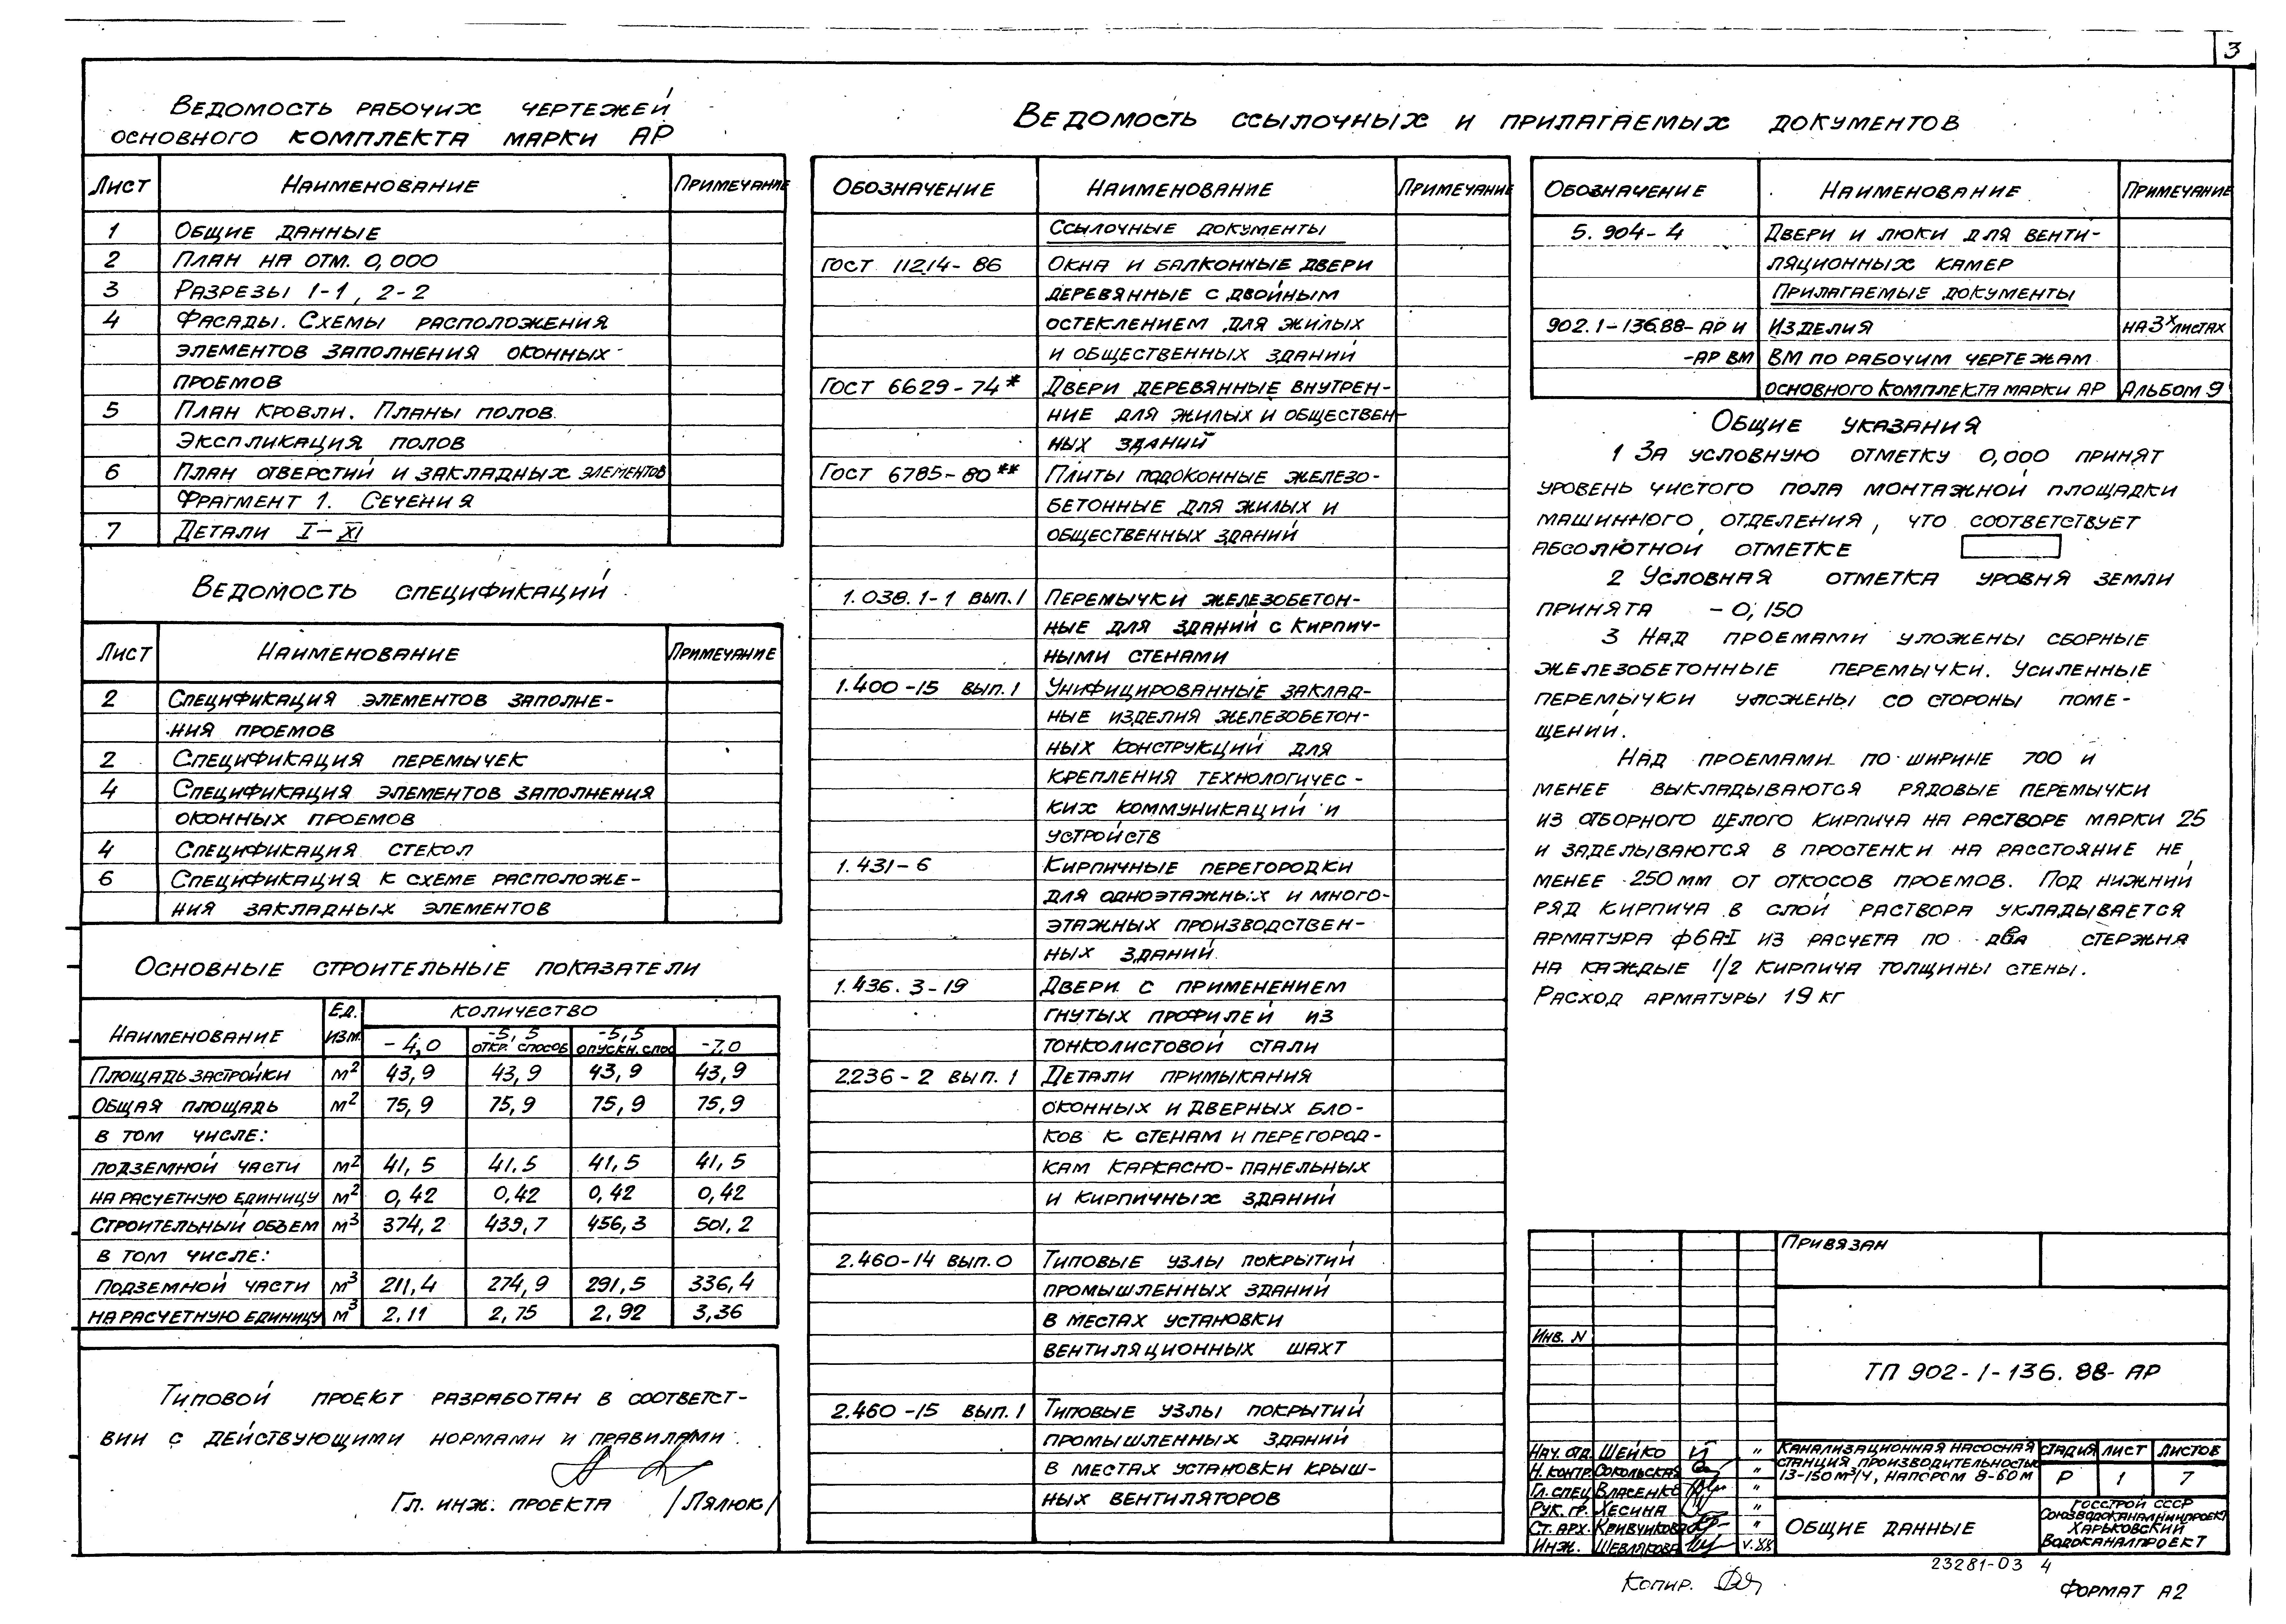 3
Ведомость рабочих чертежей
основного комплекта марки АР
Лист Наименование Примечание
1 Общие данные
2 План на отм. 0,000
3 Разрезы 1-1, 2-2
4 Фасады. Схемы расположения
элементов заполнения оконных
проемов
5 План кровли. Планы полов.
Экспликация полов
6 План отверстий и закладных элементов
Фрагмент 1. Сечения
7 Детали I-XI
Ведомость спецификаций
Лист Наименование Примечание
2 Спецификация элементов заполне-
ния проемов
2 Спецификация перемычек
4 Спецификация элементов заполнения
оконных проемов
4 Спецификация стекол
6 Спецификация к схеме расположе-
ния закладных элементов
Основные строительные показатели
Наименование Ед. изм. Количество
-4,0 -5,5 откр. способ -5,5 опускн. спос -7,0
Площадь застройки м² 43,9 43,9 43,9 43,9
Общая площадь м² 75,9 75,9 75,9 75,9
в том числе:
подземной части м² 41,5 41,5 41,5 41,5
на расчетную единицу м² 0,42 0,42 0,42 0,42
Строительный объем м³ 374,2 439,7 456,3 501,2
в том числе:
подземной части м³ 211,4 274,9 291,5 336,4
на расчетную единицу м³ 2,11 2,75 2,92 3,36
Типовой проект разработан в соответст-
вии с действующими нормами и правилами.
Гл. инж. проекта /Лялюк/
Ведомость ссылочных и прилагаемых документов
Обозначение Наименование Примечание
Ссылочные документы
ГОСТ 11214-86 Окна и балконные двери
деревянные с двойным
остеклением для жилых
и общественных зданий
ГОСТ 6629-74* Двери деревянные внутрен-
ние для жилых и обществен-
ных зданий
ГОСТ 6785-80** Плиты подоконные железо-
бетонные для жилых и
общественных зданий
1.038.1-1 вып.1 Перемычки железобетон-
ные для зданий с кирпич-
ными стенами
1.400-15 вып.1 Унифицированные заклад-
ные изделия железобетон-
ных конструкций для
крепления технологичес-
ких коммуникаций и
устройств
1.431-6 Кирпичные перегородки
для одноэтажных и много-
этажных производствен-
ных зданий
1.436.3-19 Двери с применением
гнутых профилей из
тонколистовой стали
2.236-2 вып.1 Детали примыкания
оконных и дверных бло-
ков к стенам и перегород-
кам каркасно-панельных
и кирпичных зданий
2.460-14 вып.0 Типовые узлы покрытий
промышленных зданий
в местах установки
вентиляционных шахт
2.460-15 вып.1 Типовые узлы покрытий
промышленных зданий
в местах установки крыш-
ных вентиляторов
Обозначение Наименование Примечание
5.904-4 Двери и люки для венти-
ляционных камер
Прилагаемые документы
902.1-136.88-АР И Изделия на 3х листах
-АР ВМ ВМ по рабочим чертежам
основного комплекта марки АР Альбом 9
Общие указания
1 За условную отметку 0,000 принят
уровень чистого пола монтажной площадки
машинного отделения, что соответствует
абсолютной отметке
2 Условная отметка уровня земли
принята -0,150
3 Над проемами уложены сборные
железобетонные перемычки. Усиленные
перемычки уложены со стороны поме-
щений.
Над проемами по ширине 700 и
менее выкладываются рядовые перемычки
из отборного целого кирпича на растворе марки 25
и заделываются в простенки на расстояние не
менее 250мм от откосов проемов. Под нижний
ряд кирпича в слой раствора укладывается
арматура ф6АI из расчета по два стержня
на каждые 1/2 кирпича толщины стены.
Расход арматуры 19 кг
Привязан
Инв. N
ТП 902-1-136.88-АР
Нач. отд. Шейко "
Н. контр. Сокольская "
Гл. спец Власенко "
Рук. гр. Хесина "
Ст. арх. Кривчикова "
Инж. Шевлякова V.88
Канализационная насосная
станция производительностью
13-150м³/ч, напором 8-60м
Стадия Лист Листов
Р 1 7
Общие данные
Госстрой СССР
Союзводоканалниипроект
Харьковский
Водоканалпроект
23281-03 4
Копир.
Формат А2